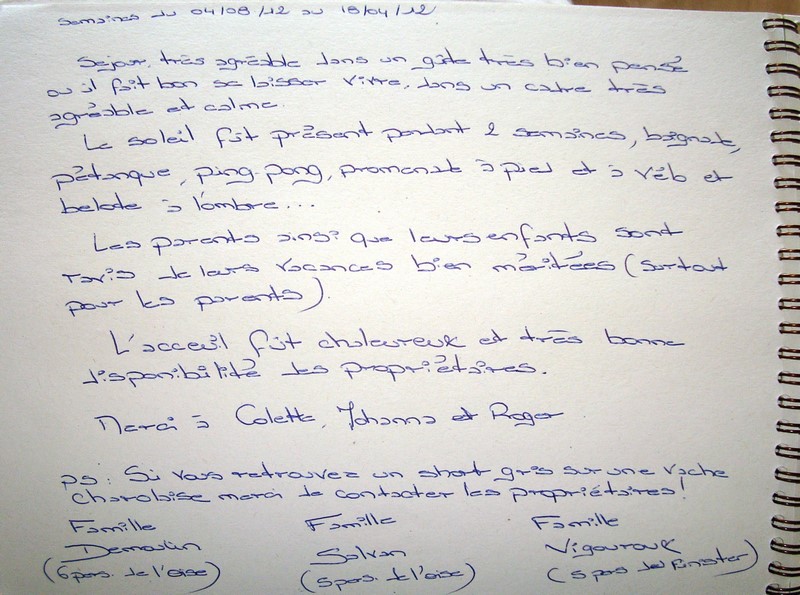 Semaines du 04/08/12 au 18/04/12
Séjour, très agréable dans un gîte très bien pensé
ou il fait bon se laisser vivre, dans un cadre très
agréable et calme.
Le soleil fût présent pendant 2 semaines, baignade,
pétanque, ping-pong, promenade à pied et à vélo et
belote à l'ombre...
Les parents ainsi que leurs enfants sont
ravis de leurs vacances bien méritées (surtout
pour les parents).
L'acceuil fût chaleureux et très bonne
disponibilité des propriétaires.
Merci à Colette, Johanna et Roger
ps : Si vous retrouvez un short gris sur une vache
charolaise merci de contacter les propriétaires !
Famille Famille Famille
Demoulin Salvan Vigouroux
(6 pers. de l'oise) (5 pers. de l'oise) (5 pers du Finister)